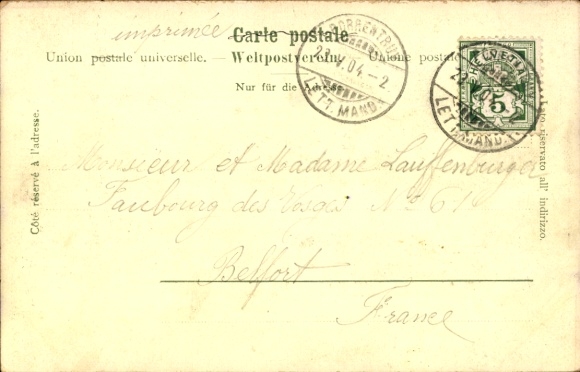 imprimée
Carte postale.
Union postale universelle. — Weltpostverein. — Unione postale
Nur für die Adresse.
PORRENTRUY
LETT. MAND.
HELVETIA
5
LETT. MAND.
Côté réservé à l'adresse.
Lato riservato all' indirizzo.
Monsieur et Madame Lauffenburger
Faubourg des Vosges No 61
Belfort
France